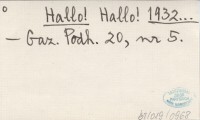 Hallo! Hallo! 1932...
— Gaz. Podh. 20, nr 5.